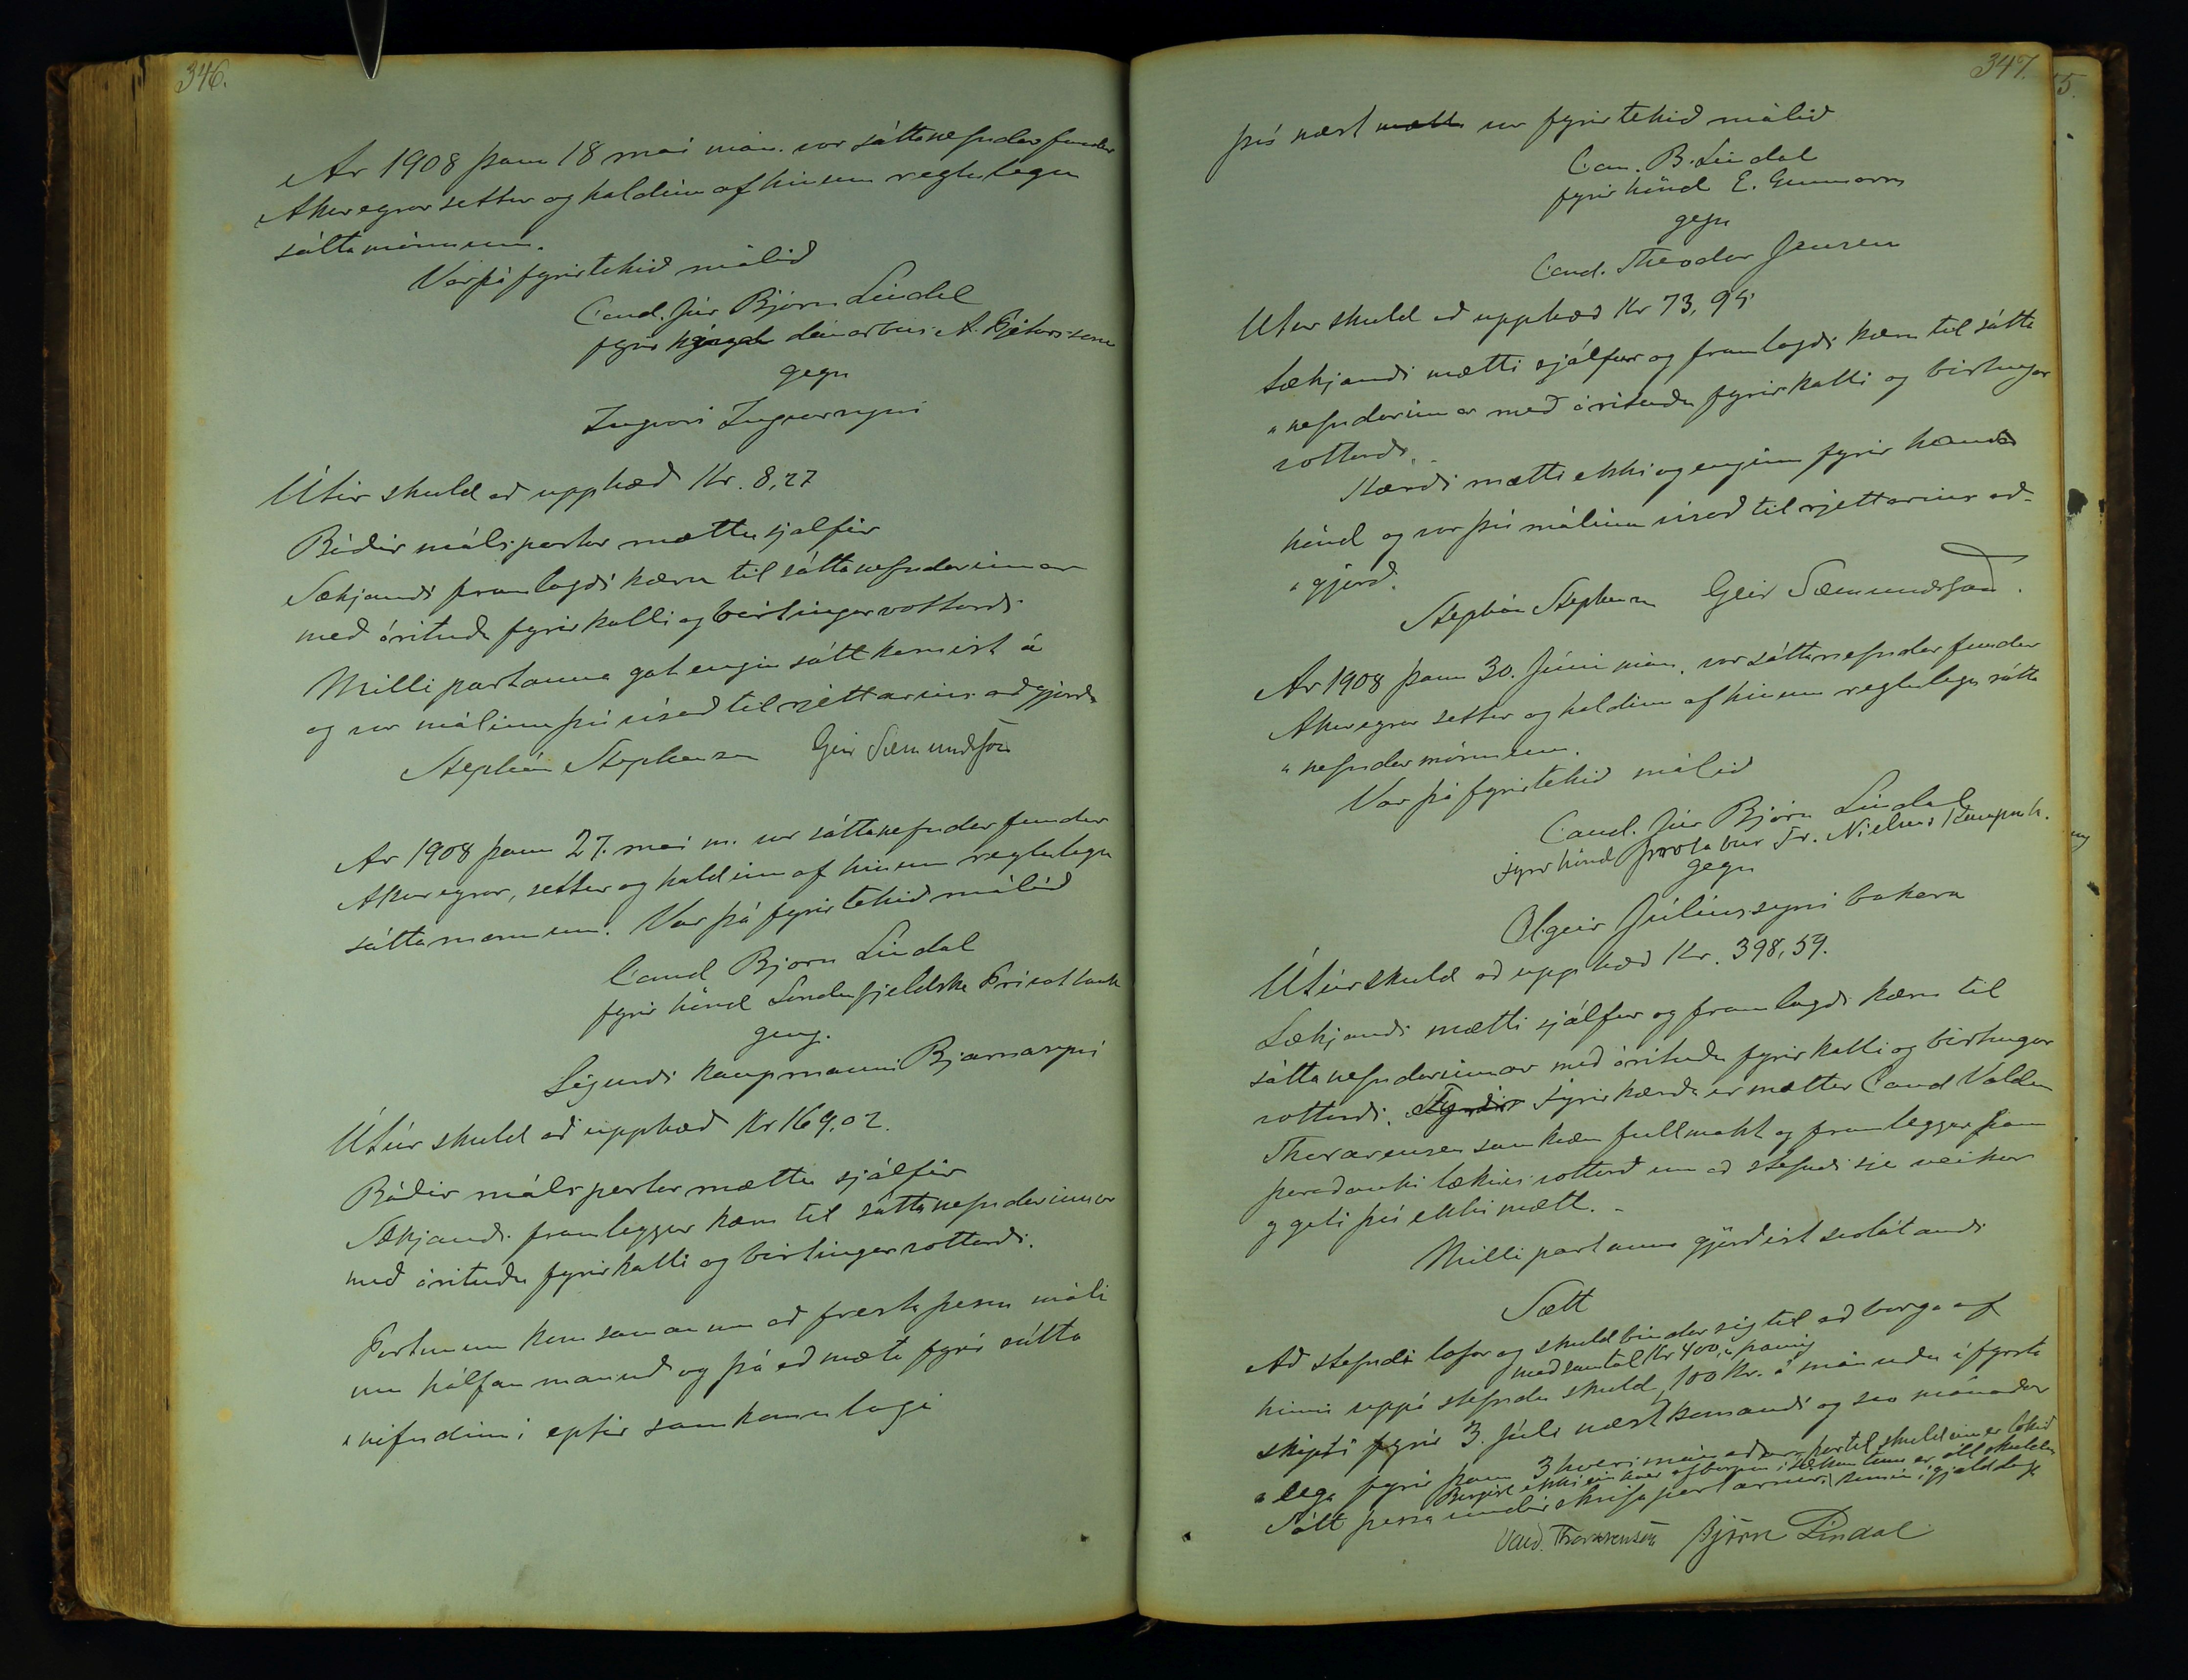 346.
Ár 1908 þann 18 maí mán. var sáttanefndarfundur
Akureyrar settur og haldinn af hinum reglulegu
sáttamönnum.
Var þá fyrirtekið málið
Cand. jur Björn Líndal
fyrir hönd dánarbús A. Pjeturssonar
gegn
Ingvari Ingvarssyni
Útúr skuld að upphæð Kr. 8,27
Báðir málspartar mættu sjálfir
Sækjandi framlagði kæru til sáttanefndarinnar
með árituðu fyrirkalli og birtingarvottorði
Milli partanna gat engin sátt komist á
og var málinu því vísað til rjettarins aðgjörða
Stephán Stephensen Geir Sæmundsson
Ár 1908 þann 27. maí m. var sáttanefndarfundur
Akureyrar, settur og haldinn af hinum reglulegu
sáttamönnum. Var þá fyrirtekið málið
Cand Björn Líndal
fyrir hönd Söndenfjeldske Privatbank
geng.
Sigurði kaupmanni Bjarnasyni
Útúr skuld að upphæð Kr 169,02.
Báðir málspartar mættu sjálfir
Sækjandi framleggur kæru til sáttanefndarinnar
með árituðu fyrirkalli og birtingarvottorði.
Pörtunum kom saman um að fresta þessu máli
um hálfan mánuð og þá að mæta fyrir sátta
"nefndinni eptir samkomulagi
347.
Því næst mætti var fyrirtekið málið
Can. B. Líndal
fyrir hönd E. Gunnars
gegn
Cand. Theodor Jensen
Útur skuld að upphæð Kr 73,95
Sækjandi mætti sjálfur og framlagði kæru til sátta
"nefndarinnar með árituðu fyrirkalli og birtingar
vottorði.
Kærði mætti ekki og enginn fyrir hans
hönd og var því málinu vísað til rjettarins að-
"gjörð.
Stephán Stephensen Geir Sæmundsson.
Ár 1908 þann 30. Júni mán. var sáttanefndarfundur
Akureyrar settur og haldinn af hinum reglulegu sátta
"nefndarmönnum.
Var þá fyrirtekið málið
Cand. jur Björn Líndal
fyrir hönd þrotabús Fr. Nielsens Kaupmh.
gegn
Olgeir Júlíussyni bakara
Útúrskuld að upphæð Kr. 398,59.
Sækjandi mætti sjálfur og framlagði kæru til
sáttanefndarinnar með árituðu fyrirkalli og birtingar
vottorði. Fyrir kærða er mættur Cand Valdm
Thorarensen samkvæmt fullmakt og framleggur
læknisvottorð um að stefndi sje veikur
og geti því ekki mætt. -
Milli partanna gjörðist svolátandi
Sætt
Að stefndi lofar og skuldbindur sig til að borga af
með samtals Kr 400,
hinni uppá stefndu skuld, 100 Kr. á mánuðu í fyrsta
skipti fyrir 3. Júlí næstkomandi og svo mánaðar
"lega fyrir þann 3 hvers mánaðar, þar til skuldinni er lokið
Borgist ekki einhver afborgun í tækan tíma er öll skuldin
Sátt þessa undirskrifa partarnir. komin í gjalddaga
Vald. Thorarensen Björn Líndal